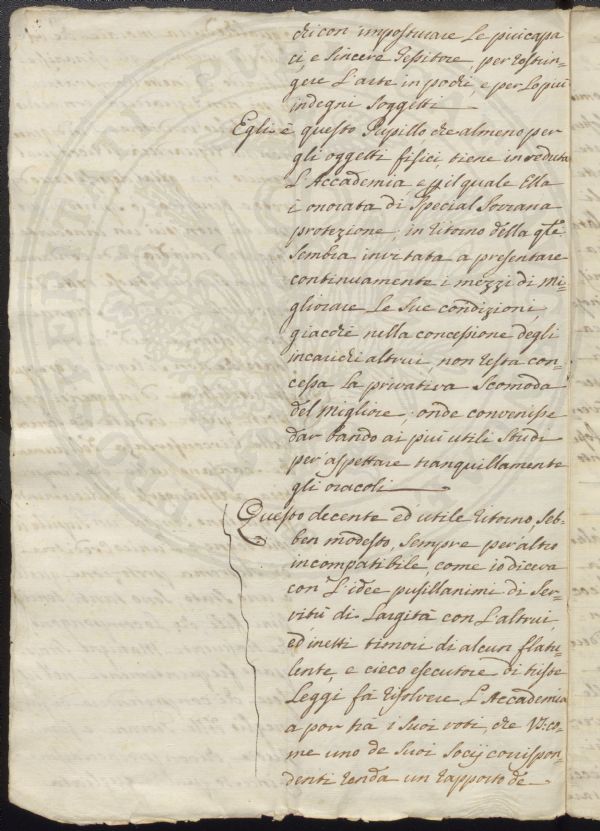 chi con imposturare le più capa
ci, e sincere Tessitore, per costrin=
gere L'arte in pochi, e per lo più
indegni Soggetti
Egli è questo Pupillo che almeno per
gli oggetti fisici, tiene in veduta
L'Accademia, e pel quale Ella
è onorata di Special Sovrana
protezione, in ritorno della qle
Sembra invitata a presentare
continuamente i mezzi di mi=
gliorare Le Sue condizioni,
giacchè nella concessione degli
incarichi altrui, non resta con=
cessa La privativa Scomoda
del migliore, onde convenisse
dar bando ai più utili Studi
per aspettare tranquillamente
gli oracoli
Questo decente ed utile ritorno Seb=
ben modesto, Sempre per altro
incompatibile, come io diceva
con L'idee pusillanimi di Ser=
vitù di Largità con L'altrui,
ed inetti timori di alcun flatu=
lente, e cieco esecutore di triste
Leggi fà risolvere L'Accademia
a por trà i Suoi voti, che V: co=
me uno de Suoi Socij corrispon=
denti renda un rapporto de